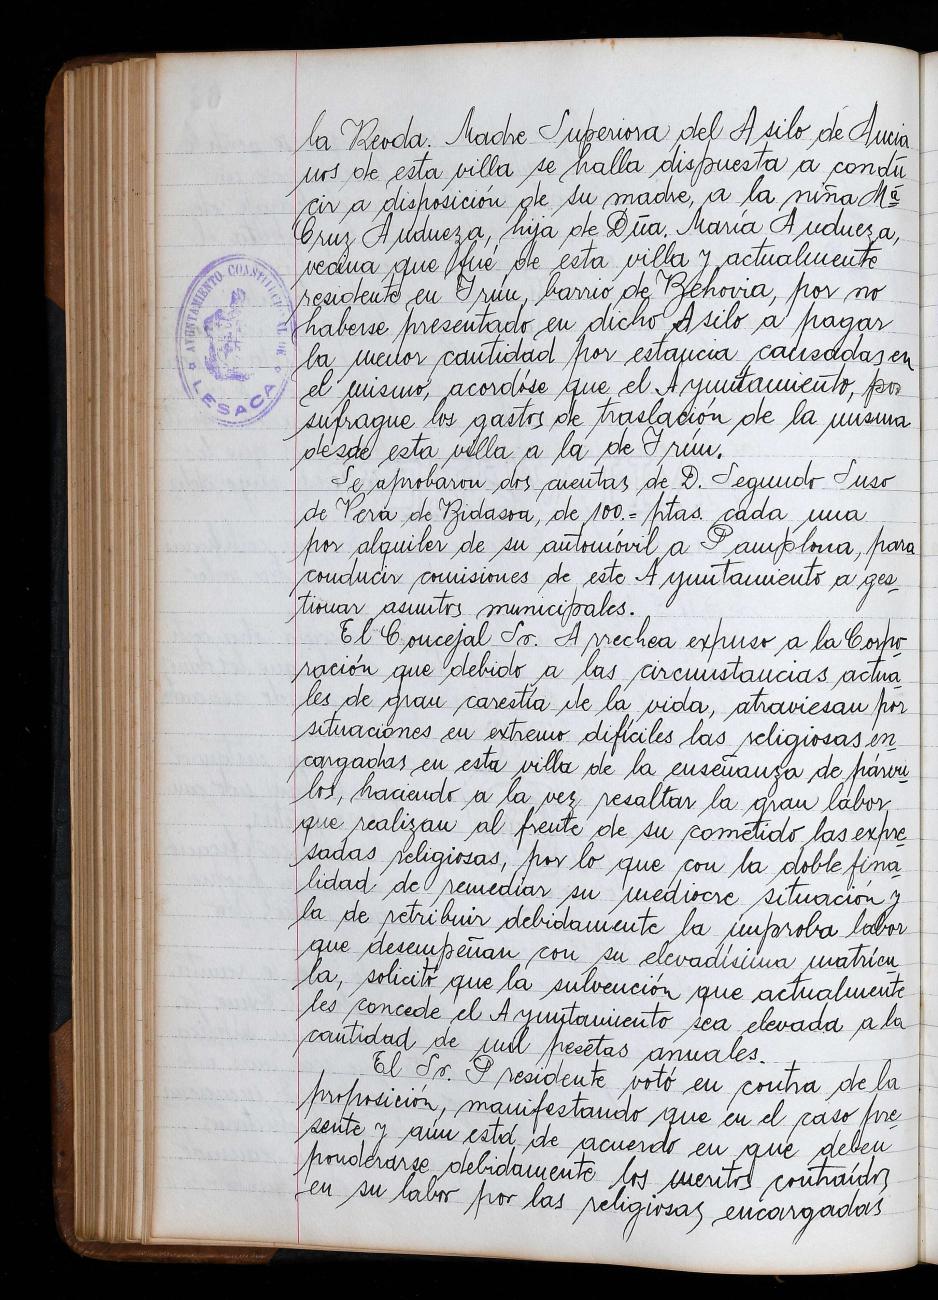 la Revda. Madre Superiora del Asilo de Ancia
nos de esta villa se halla dispuesta a condu
cir a disposición de su madre, a la niña Mª
Cruz Andueza, hija de Dña. María Andueza,
vecina que fue de esta villa y actualmente
residente en Irún, barrio de Behovia, por no
haberse presentado en dicho Asilo a pagar
la menor cantidad por estancia causadas en
el mismo, acordóse que el Ayuntamiento, por
sufrague los gastos de traslación de la misma
desde esta villa a la de Irún.
Se aprobaron dos cuentas de D. Segundo Suso
de Vera de Bidasoa, de 100.= ptas. cada una
por alquiler de su automóvil a Pamplona, para
conducir comisiones de este Ayuntamiento a ges-
tionar asuntos municipales.
El Concejal Sr. Arrechea expuso a la Corpo-
ración que debido a las circunstancias actua
les de gran carestía de la vida, atraviesan por
situaciones en extremo difíciles las religiosas en-
cargadas en esta villa de la enseñanza de párvu-
los, haciendo a la vez resaltar la gran labor
que realizan al frente de su cometido las expre-
sadas religiosas, por lo que con la doble fina-
lidad de remediar su mediocre situación y
la de retribuir debidamente la ímproba labor
que desempeñan con su elevadísima matrícu
la, solicitó que la subvención que actualmente
les concede el Ayuntamiento sea elevada a la
cantidad de mil pesetas anuales.
El Sr. Presidente votó en contra de la
proposición, manifestando que en el caso pre-
sente y aún está de acuerdo en que deben
ponderarse debidamente los meritos contraídos
en su labor por las religiosas encargadas
AYUNTAMIENTO CONSTITUCIONAL DE
LESACA